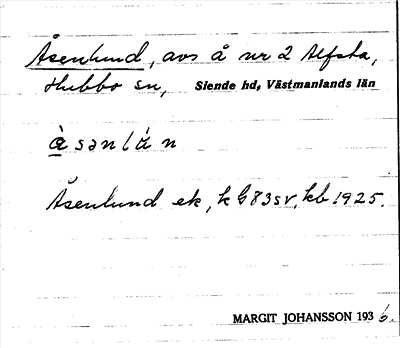 Åsenlund, avs å nr 2 Alfsta,
Hubbo sn, Siende hd, Västmanlands län
Åsenlund ek, k G83sv, kb 1925.
MARGIT JOHANSSON 1936.